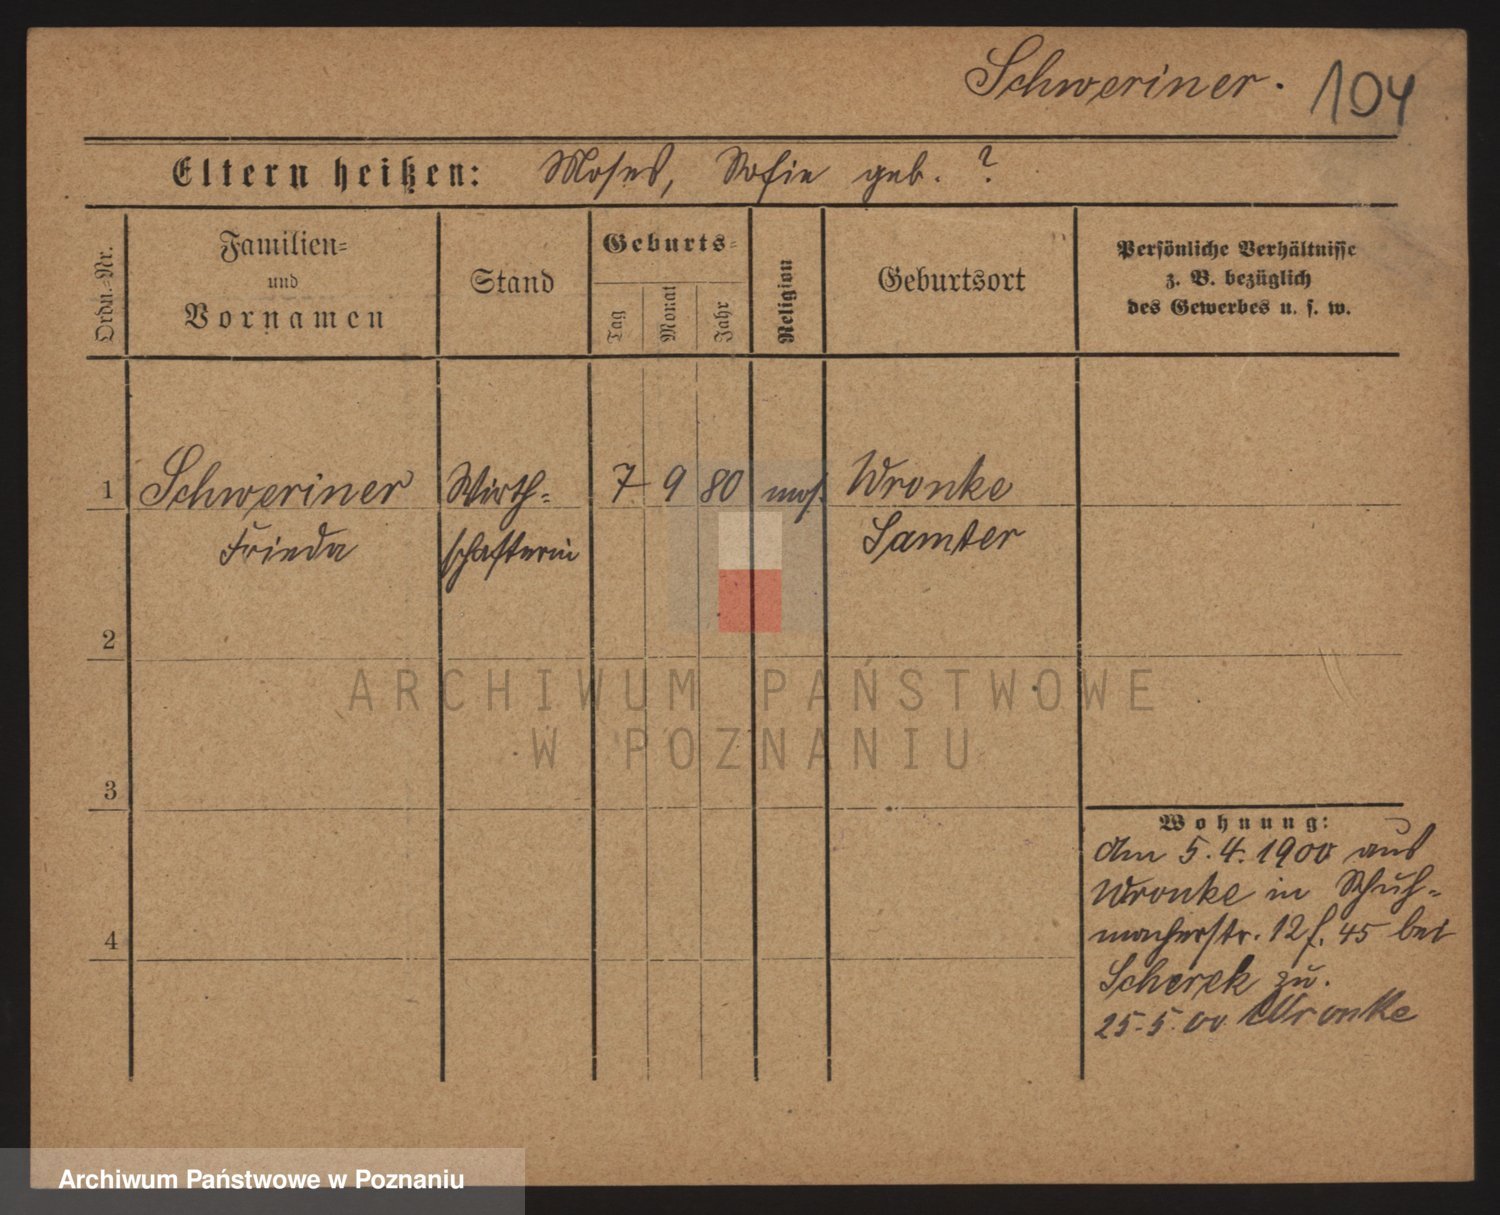 Schweriner. 104
Eltern heißen: Moses, Sofie geb. ?
Ordn.=Nr.
Familien=
und
Vornamen
Stand
Geburts=
Tag
Monat
Jahr
Religion
Geburtsort
Persönliche Verhältnisse
z. B. bezüglich
des Gewerbes u. s. w.
1 Schweriner Wirth= 7 9 80 mos. Wronke
Frieda schafterin Samter
2
ARCHIWUM PAŃSTWOWE
W POZNANIU
3
Wohnung:
Am 5.4.1900 aus
Wronke in Schuh=
macherstr. 12 f. 45 bei
Scherek zu.
4
25.5.00 Wronke
Archiwum Państwowe w Poznaniu